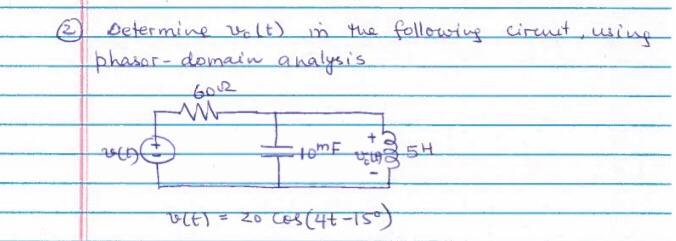 ② Determine v_c(t) in the following circuit, using
phasor-domain analysis
60Ω
v(t) + - 10mF + v_c(t) - 5H
v(t) = 20 cos(4t-15°)